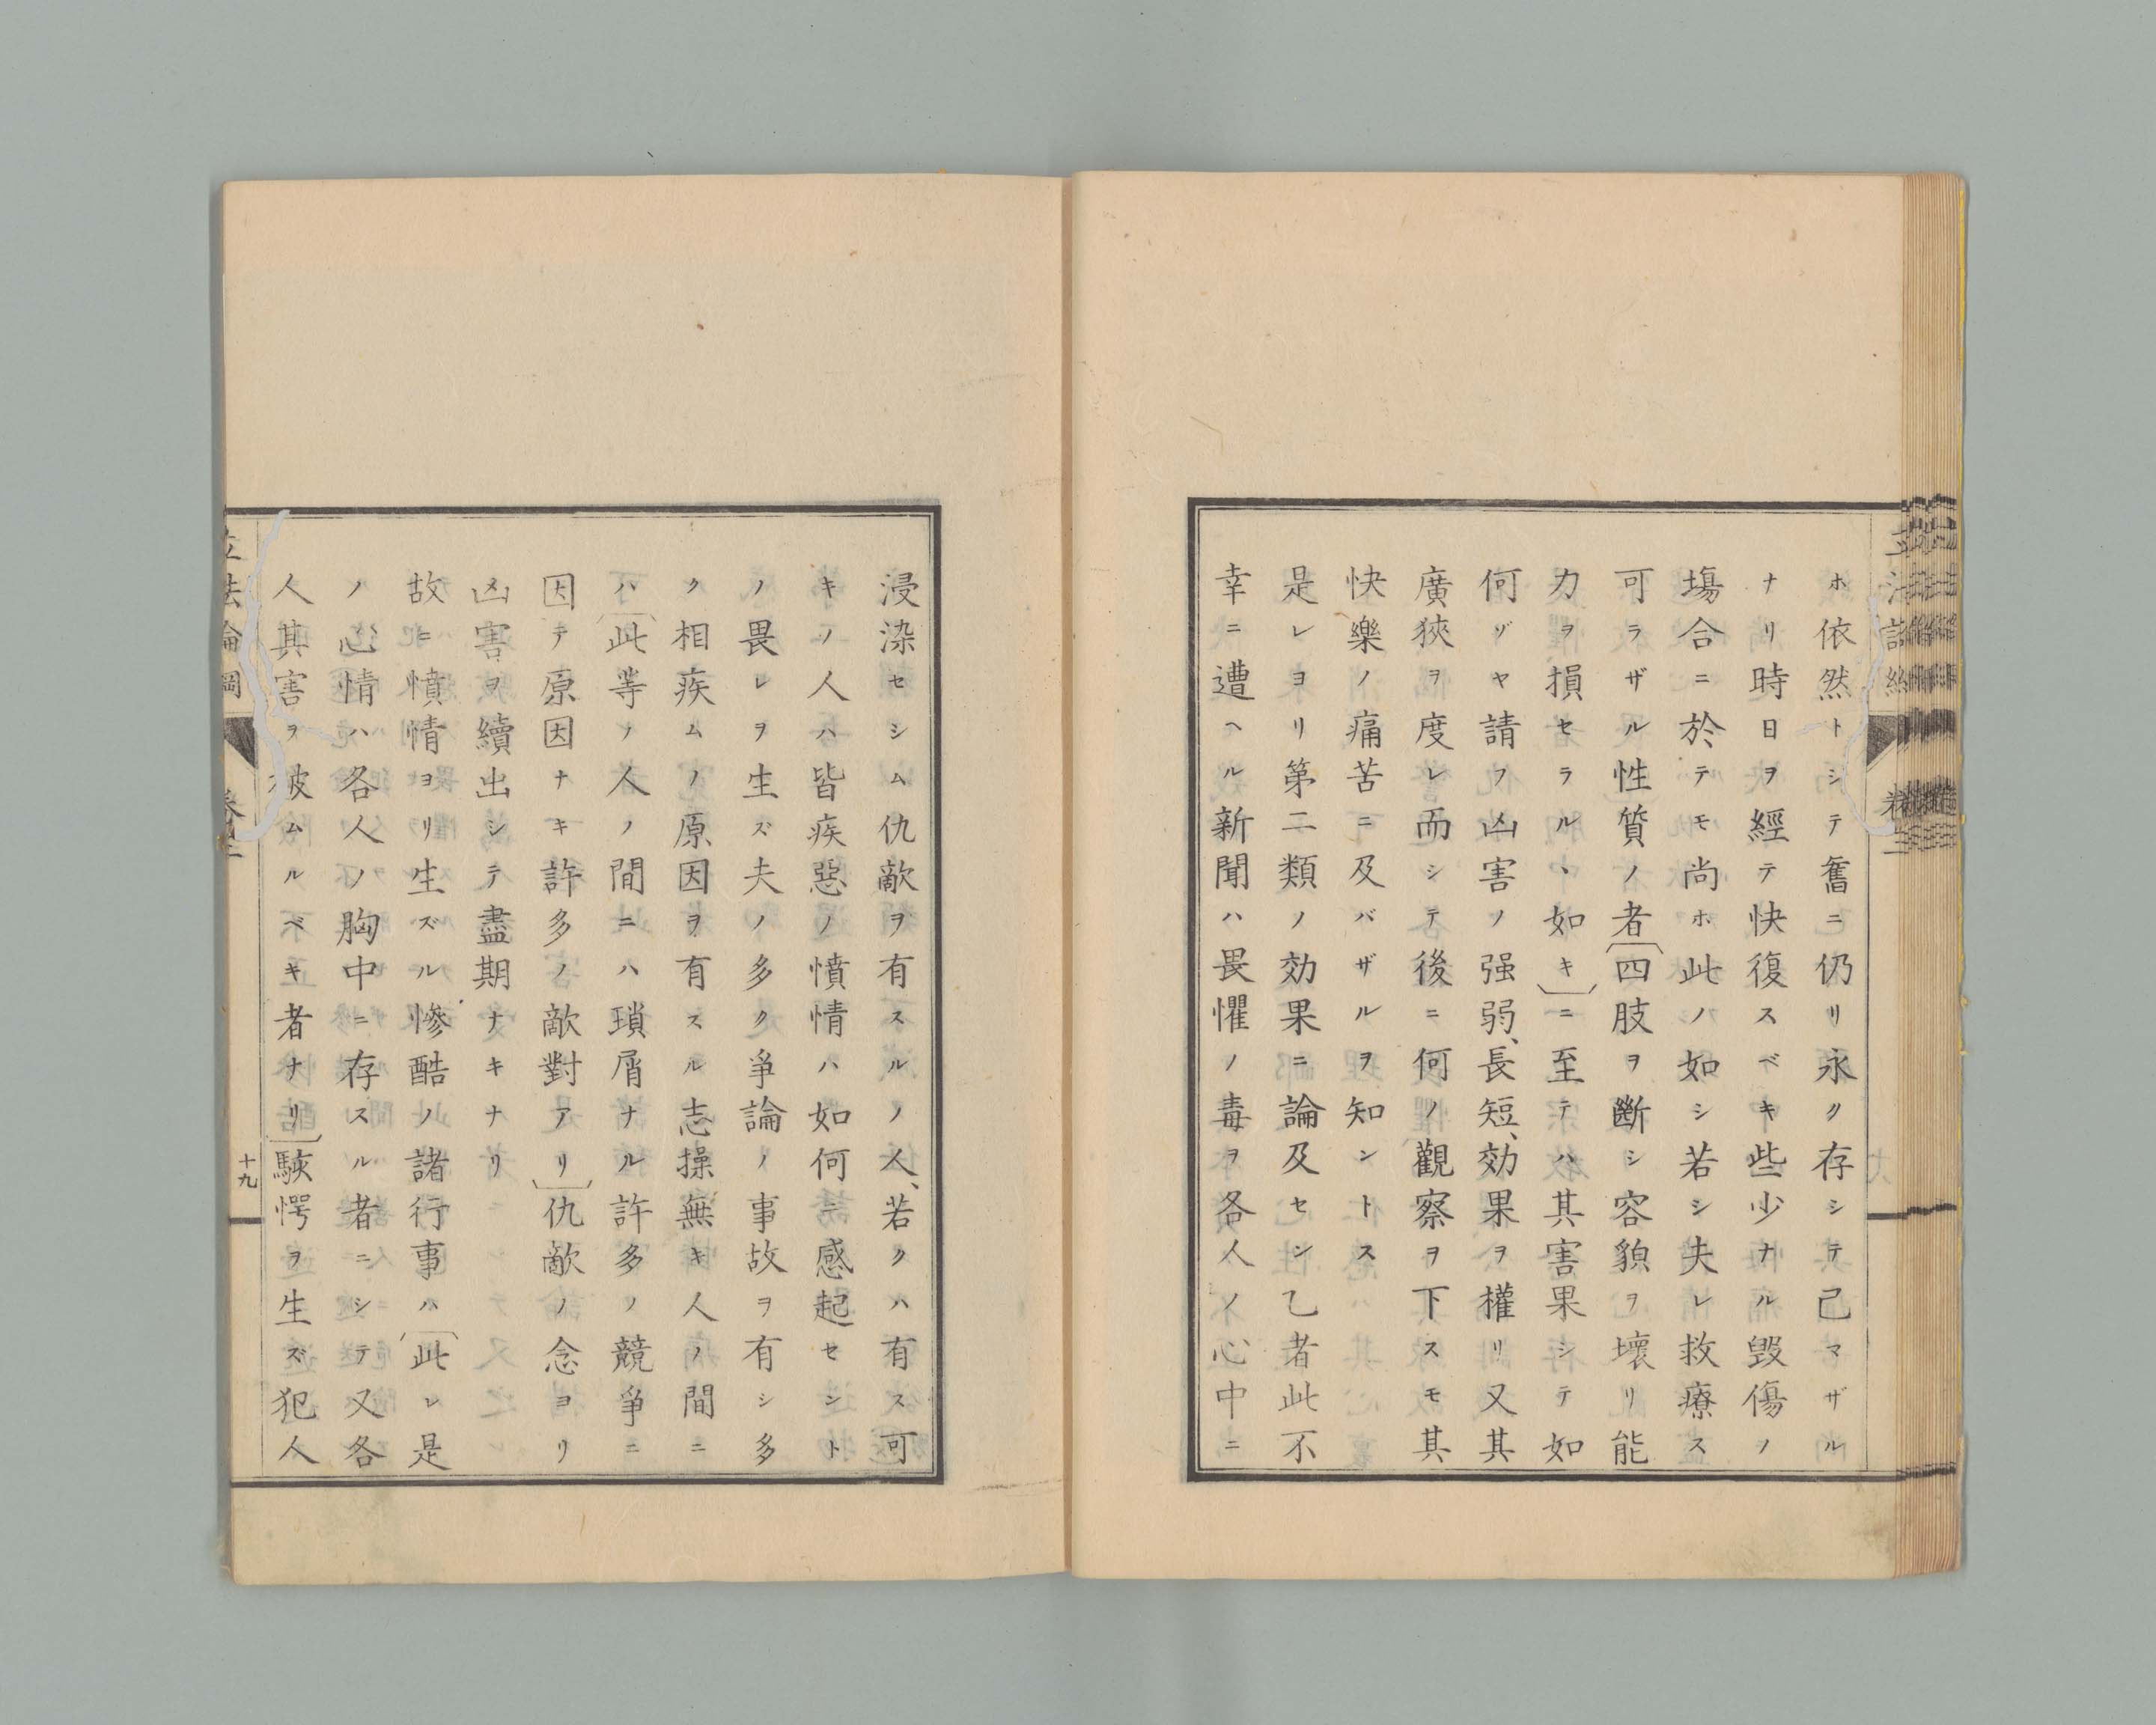 ホ依然トシテ奮ニ仍リ永ク存シテ己マザル
ナリ時日ヲ經テ快復スベキ些少ナル毀傷ノ
塲合ニ於テモ尚ホ此ノ如シ若シ夫レ救療ス
可ラザル性質ノ者〔四肢ヲ斷シ容貌ヲ壞リ能
力ヲ損セラルヽ如キ〕ニ至テハ其害果シテ如
何ゾヤ請フ凶害ノ强弱、長短、効果ヲ權リ又其
廣狹ヲ度レ而シテ後ニ何ノ觀察ヲ下スモ其
快樂ノ痛苦ニ及バザルヲ知ントス
是レヨリ第二類ノ効果ニ論及セン乙者此不
幸ニ遭ヘル新聞ハ畏懼ノ毒ヲ各人ノ心中ニ
浸染セシム仇敵ヲ有スルノ人、若クハ有ス可
キノ人ハ皆疾惡ノ憤情ハ如何ニ感起セシト
ノ畏レヲ生ズ夫ノ多ク爭論ノ事故ヲ有シ多
ク相疾ムノ原因ヲ有スル志操無キ人ノ間ニ
ハ〔此等ノ人ノ間ニハ瑣屑ナル許多ノ競爭ニ
因テ原因ナキ許多ノ敵對アリ〕仇敵ノ念ヨリ
凶害ヲ續出シテ盡期ナキナリ
故ニ憤情ヨリ生ズル慘酷ノ諸行事ハ〔此レ是
ノ心情ハ各人ノ胸中ニ存スル者ニシテ又各
人其害ヲ被ムルベキ者ナリ〕駭愕ヲ生ズ犯人
立法論綱
十九